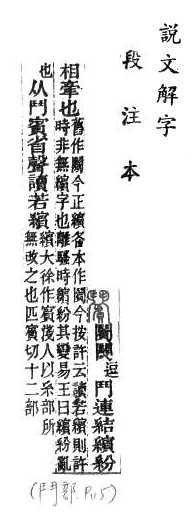 說文解字
段注本
䦰䦰逗鬥連結繽紛
相牽也
舊作䦰今正繽各本作䦰今按許云讀若繽則許
時非無繽字也離騷時繽紛其變易王曰繽紛亂
也
从鬥賓省聲讀若繽
繽大徐作賓淺人以糸部所
無改之也匹賓切十二部
(鬥部 P.15)